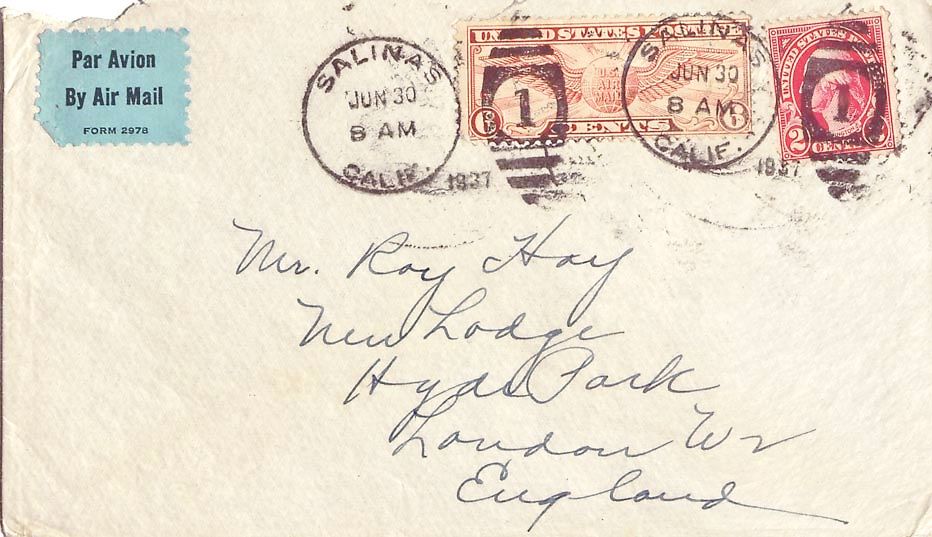 Par Avion
By Air Mail
FORM 2978
SALINAS
JUN 30
8 AM
CALIF.
1937
1
UNITED STATES
U.S.
AIR
MAIL
CENTS
SALINAS
JUN 30
8 AM
CALIF.
1937
1
UNITED STATES
2
2
CENTS
Mr. Roy Hay
New Lodge
Hyde Park
London W2
England